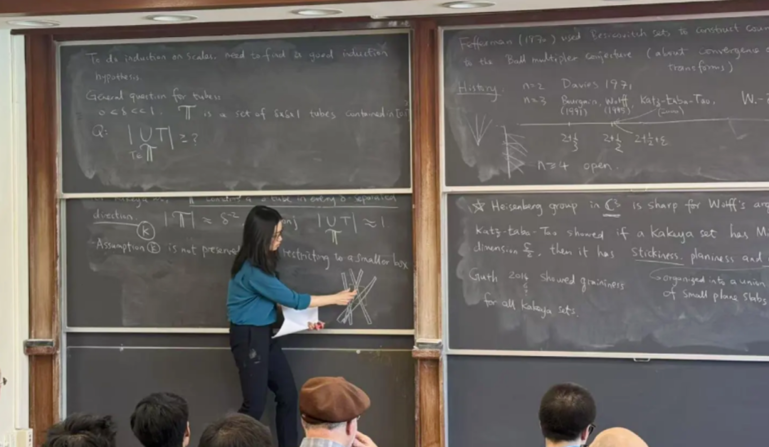 To do induction on scales, need to find a good induction
hypothesis.
General question for tubes:
0 < δ << 1. 𝕋 is a set of δxδx1 tubes contained in
Q: |∪T| ≥ ?
T∈𝕋
direction. |𝕋| ≈ δ⁻² |∪T| ≈ 1
(K) 𝕋
Assumption (K) is not restricting to a smaller box
Fefferman (1970) used Besicovitch sets to construct
to the Ball multiplier conjecture (about convergence
transforms)
History: n=2 Davies 1971
n=3 Bourgain, Wolff, Katz-Łaba-Tao, W.-
(1991) (1995)
n=4 open.
☆ Heisenberg group in ℂ³ is sharp for Wolff's
Katz-Łaba-Tao showed if a Kakeya set has
dimension 5/2, then it has Stickiness, planiness and
Guth 2014 showed graininess organized into a union
of small plane slabs
for all Kakeya sets.